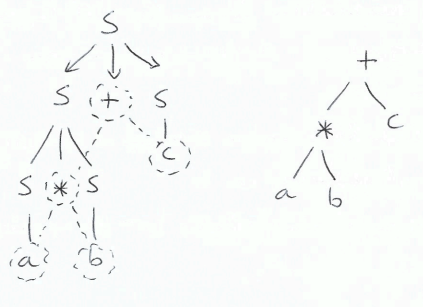 S
S + S
S * S c
a b
+
* c
a b